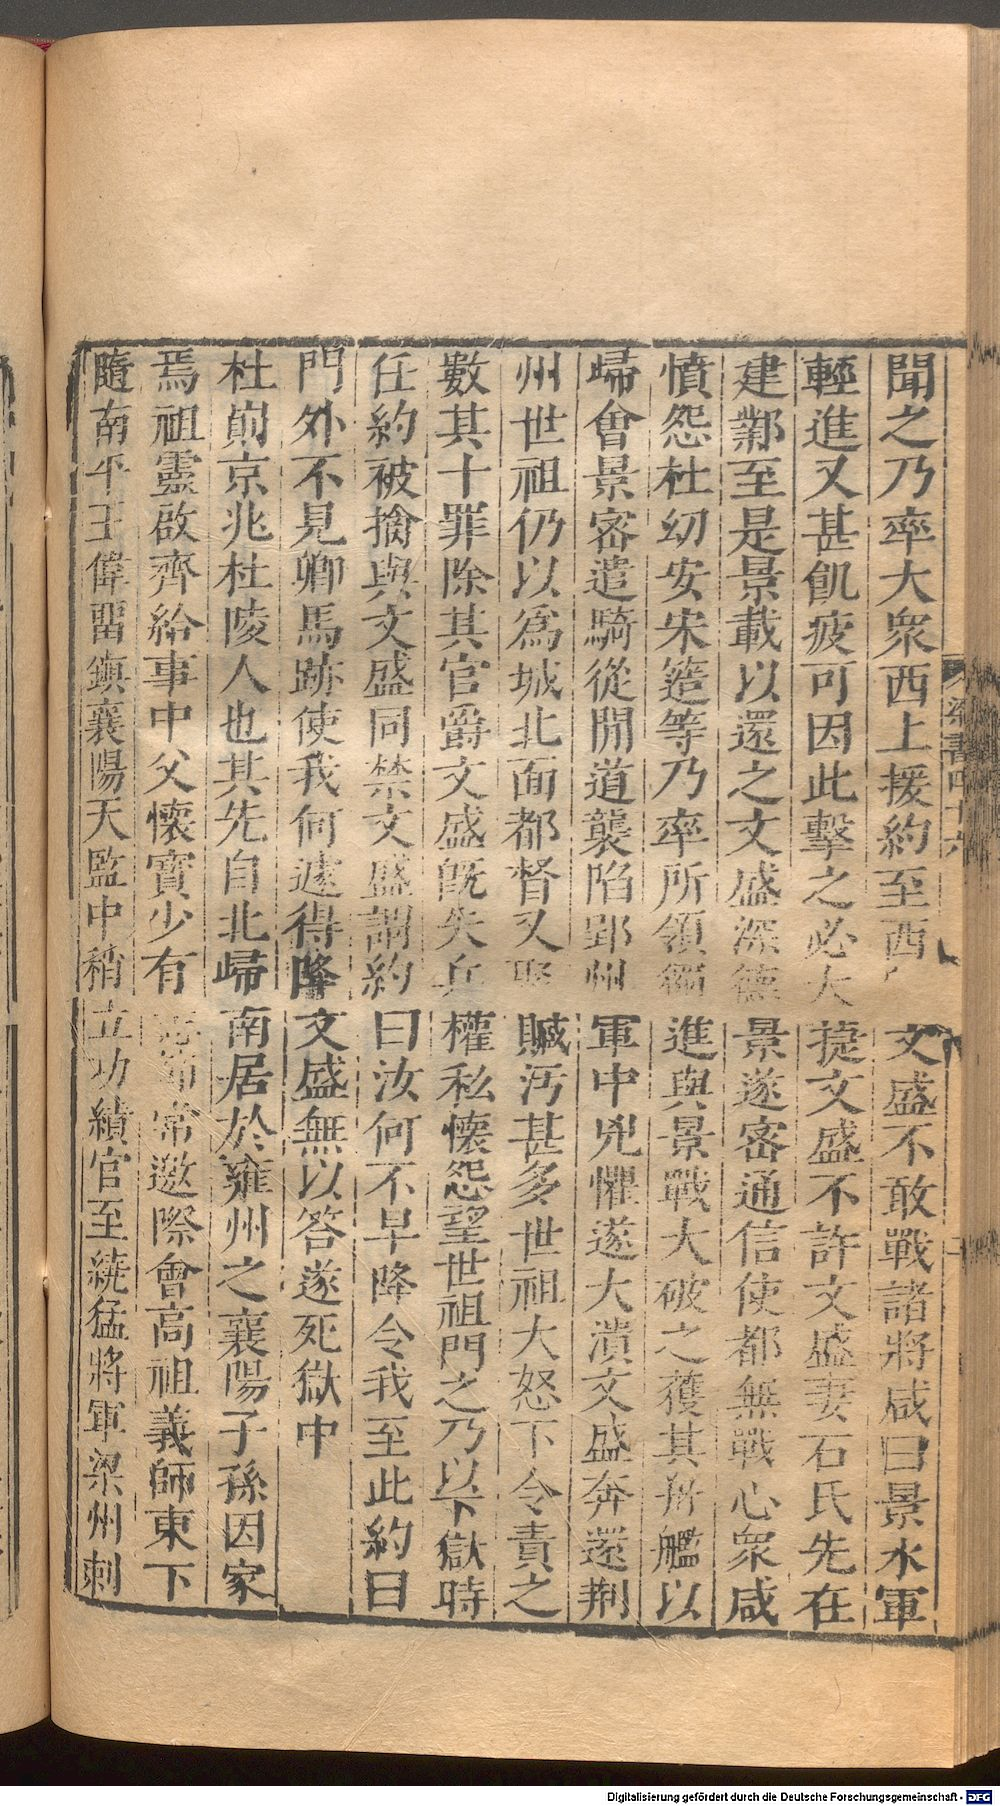 聞之乃率大衆西上援約至西文盛不敢戰諸將咸曰景水軍
輕進又甚飢疲可因此擊之必大捷文盛不許文盛妻石氏先在
建鄴至是景載以還之文盛深德景遂密通信使都無戰心衆咸
憤怨杜幼安宋簉等乃率所領獨進與景戰大破之獲其舟艦以
歸會景密遣騎從閒道襲陷郢州軍中兇懼遂大潰文盛奔還荆
州世祖仍以爲城北面都督又聚贓汚甚多世祖大怒下令責之
數其十罪除其官爵文盛旣失兵權私懷怨望世祖門之乃以下獄時
任約被擒與文盛同禁文盛謂約曰汝何不早降令我至此約曰
門外不見卿馬跡使我何遽得降文盛無以答遂死獄中
杜崱京兆杜陵人也其先自北歸南居於雍州之襄陽子孫因家
焉祖靈啟齊給事中父懷寶少有志節常邀際會高祖義師東下
隨南平王偉留鎮襄陽天監中稍立功績官至繞猛將軍梁州刺
梁書四十六
Digitalisierung gefördert durch die Deutsche Forschungsgemeinschaft - DFG